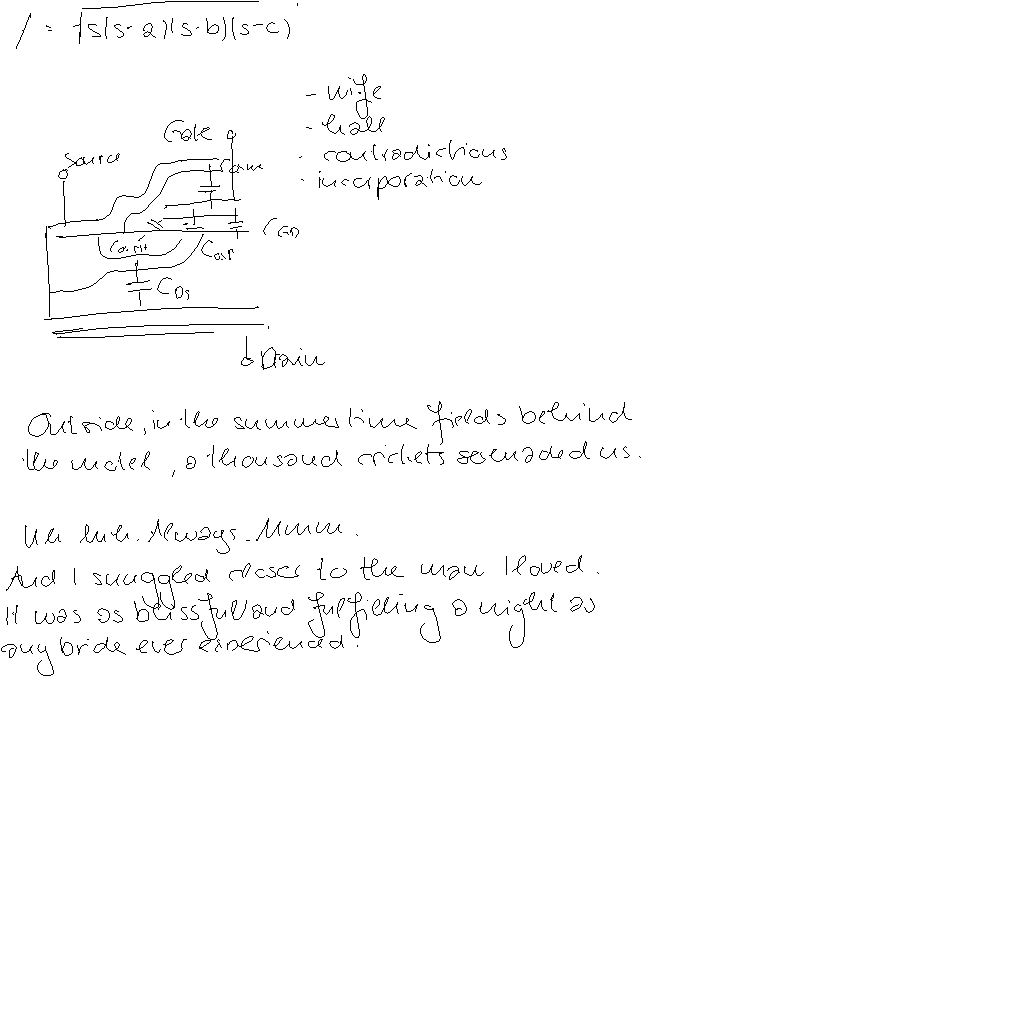 / = √s(s-a)(s-b)(s-c)
- wife
- hall
- contradictions
- incorporation
Gate
Source
C_GD
C_DS
Drain
Outside, in the summertime fields behind
the motel, a thousand crickets serenaded us.
Uh huh. Always. Mmmm.
And I snuggled closer to the man I loved.
It was as blissful and fulfilling a night as
any bride ever experienced.